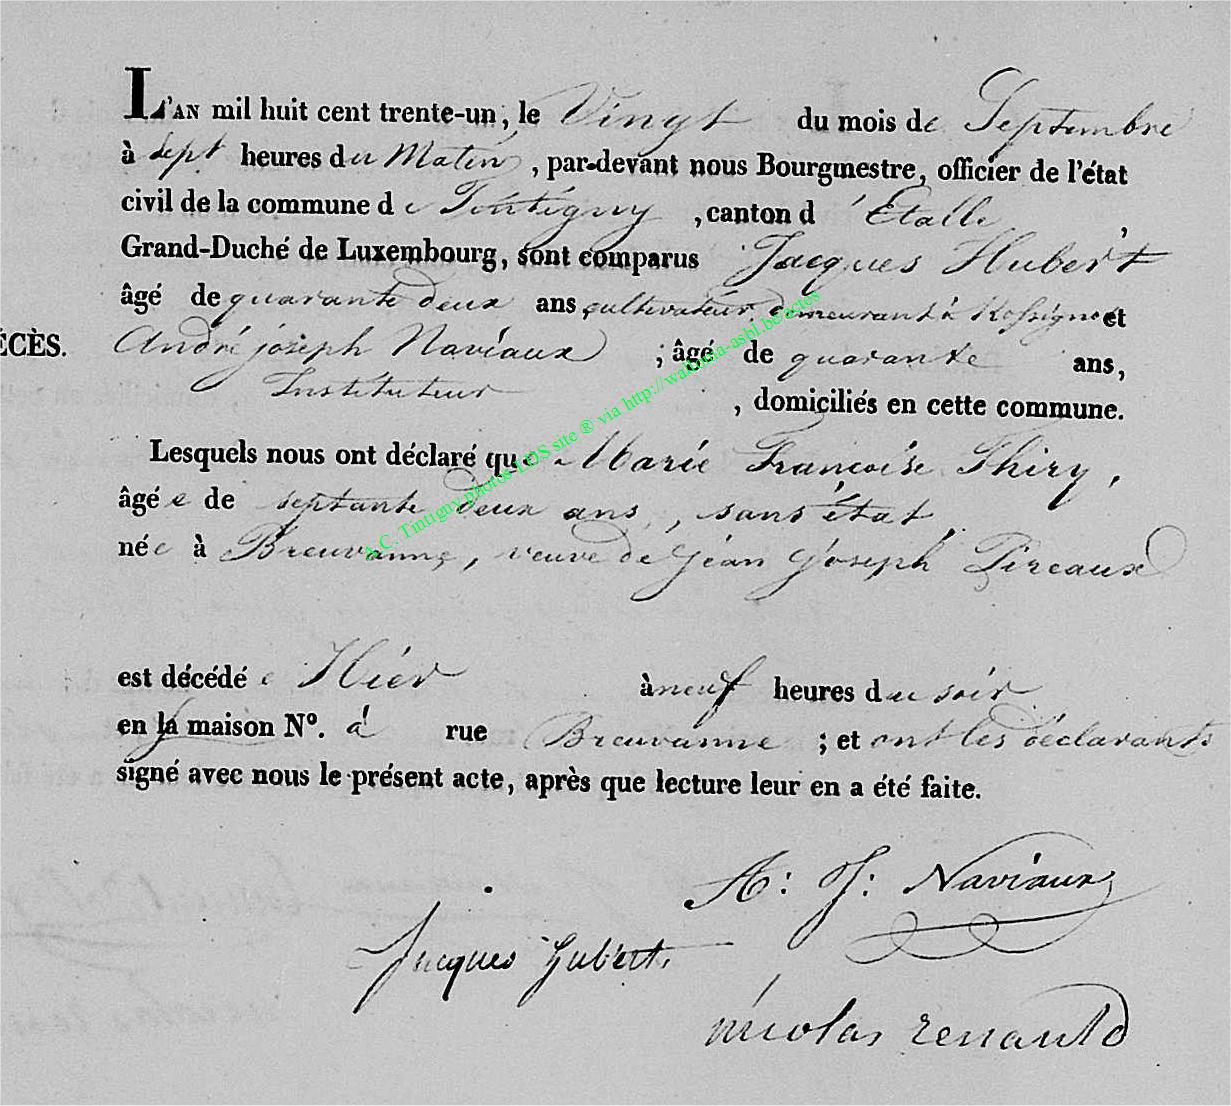 L'AN mil huit cent trente-un, le Vingt du mois de Septembre
à Sept heures du Matin, par-devant nous Bourgmestre, officier de l'état
civil de la commune de Tintigny, canton d'Étalle,
Grand-Duché de Luxembourg, sont comparus Jacques Hubert
âgé de quarante deux ans, cultivateur, demeurant à Rossignol et
ÉCÈS.
André joseph Naviaux ; âgé de quarante ans,
Instituteur, domiciliés en cette commune.
Lesquels nous ont déclaré que Marie Françoise Thiry,
âgée de septante deux ans, sans état,
née à Breuvanne, veuve de Jean Joseph Pireaux
est décédée Hier à neuf heures du soir
en la maison N°. à rue Breuvanne ; et ont les déclarants
signé avec nous le présent acte, après que lecture leur en a été faite.
A: J: Naviaux
Jacques Hubert.
nicolas renauld
A.C. Tintigny photos LDS site ® via http://wallonia-asbl.be/actes